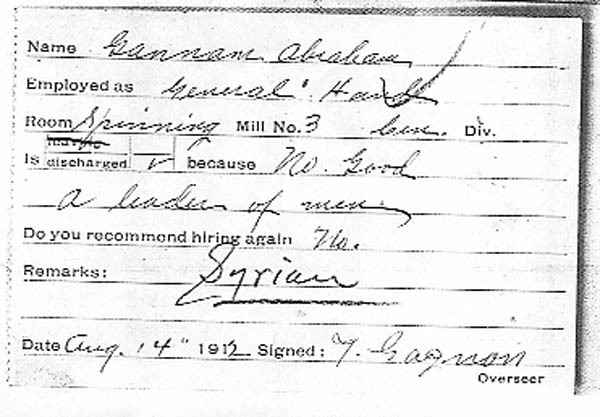 Name Gannam Abraham
Employed as General Hand
Room Spinning Mill No. 3 Gen. Div.
leaving
Is discharged ✓ because No. Good
a leader of men
Do you recommend hiring again No.
Remarks: Syrian
Date Aug. 14" 1912 Signed: F. Gagnon
Overseer